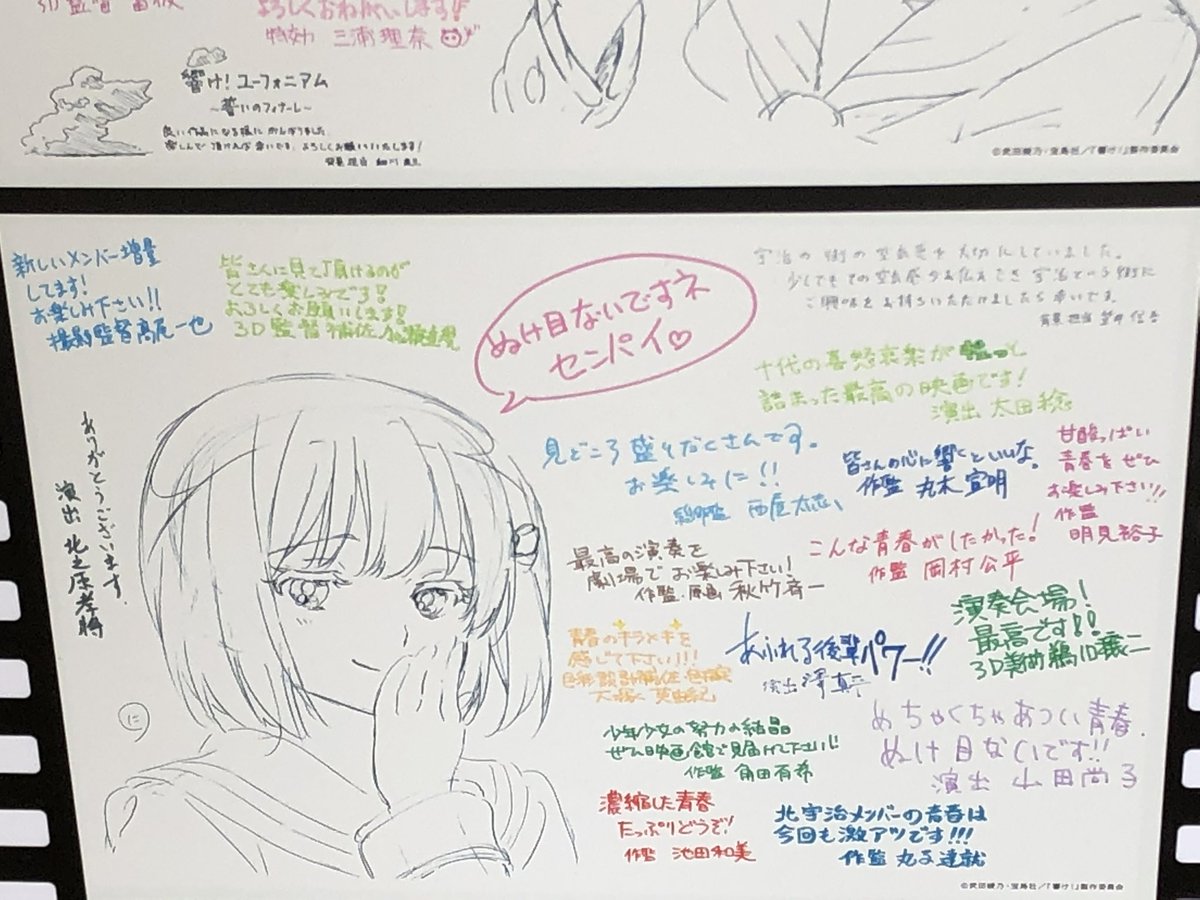 よろしくおねがいします!
特効 三浦理奈
響け!ユーフォニアム
~誓いのフィナーレ~
良い作品になる様に がんばりました
楽しんで頂ければ幸いです。よろしくお願いいたします!
背景担当 細川
©武田綾乃・宝島社/『響け!』製作委員会
新しいメンバー増量
してます!
お楽しみ下さい!!
撮影監督 高尾一也
皆さんに見て頂けるのが
とても楽しみです!
よろしくお願いします!
3D監督補佐
ぬけ目ないですネ
センパイ♡
宇治の街の空気感を大切にしていました。
少しでもその空気感をお伝えでき 宇治という街に
ご興味をお持ちいただけましたら幸いです。
背景担当
十代の喜怒哀楽がギュッと
詰まった最高の映画です!
演出 太田稔
ありがとうございます。
演出 北之原孝將
見どころ盛りだくさんです。
お楽しみに!!
総作監 西屋太志
皆さんの心に響くといいな。
作監 丸木宣明
甘酸っぱい
青春をぜひ
お楽しみ下さい!!
作監
明見裕子
最高の演奏を
劇場でお楽しみ下さい!
作監・原画 秋竹斉一
こんな青春がしたかった!
作監 岡村公平
青春のキラメキを
感じて下さい!!!
色彩設計補佐・色指定
あふれる後輩パワー!!
演出 澤真平
演奏会場!
最高です!!
3D美術 鵜ノ口穣二
に
少年少女の努力の結晶
ぜひ映画館で見届けて下さい!!
作監 角田有希
めちゃくちゃあつい青春。
ぬけ目ないです!!
演出 山田尚子
濃縮した青春
たっぷりどうぞ!
作監 池田和美
北宇治メンバーの青春は
今回も激アツです!!!
作監 丸子達就
©武田綾乃・宝島社/『響け!』製作委員会